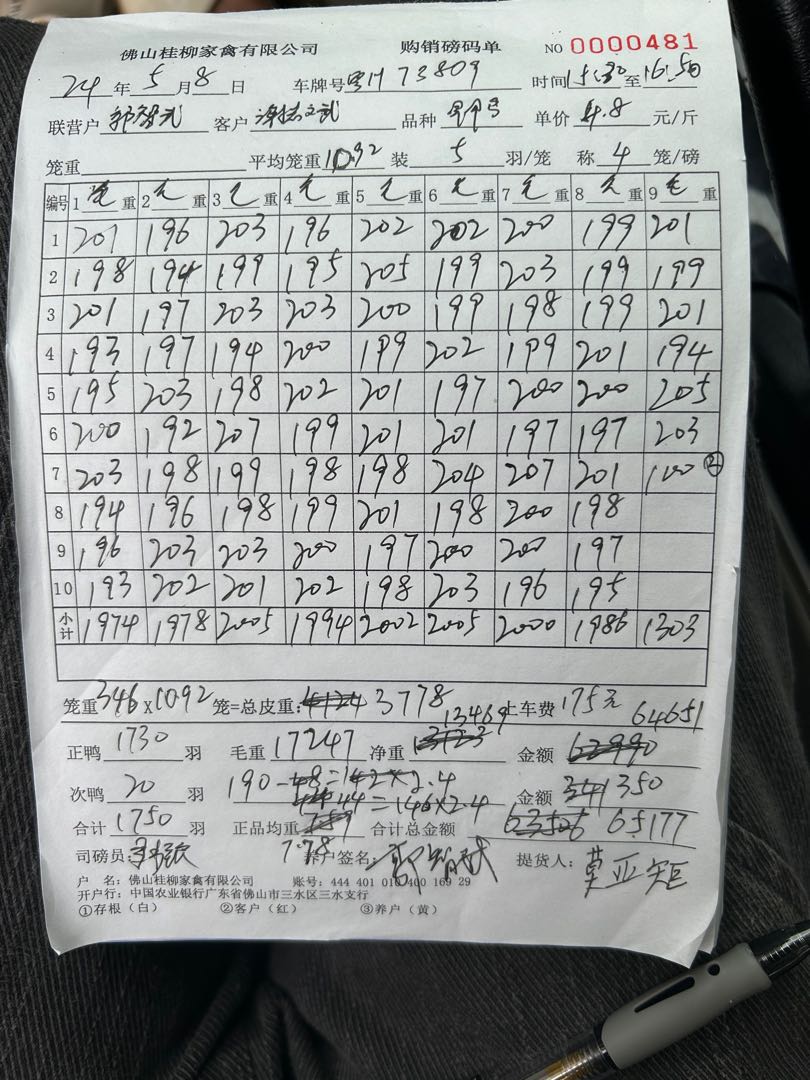 佛山桂柳家禽有限公司 购销磅码单 NO 0000481
24年5月8日 车牌号 73809 时间15:30至16:50
联营户 客户 品种 单价4.8元/斤
笼重 平均笼重10.92装5羽/笼 称4笼/磅
编号 1毛重 2毛重 3毛重 4毛重 5毛重 6毛重 7毛重 8毛重 9毛重
1 201 196 203 196 202 202 200 199 201
2 198 194 199 195 205 199 203 199 199
3 201 197 203 203 200 199 198 199 201
4 193 197 194 200 199 202 199 201 194
5 195 203 198 202 201 197 200 200 205
6 200 192 207 199 201 201 197 197 203
7 203 198 199 198 198 204 207 201 100
8 194 196 198 199 201 198 200 198
9 196 203 203 200 197 200 200 197
10 193 202 201 202 198 203 196 195
小计 1974 1978 2005 1994 2002 2005 2000 1986 1303
笼重346×10.92笼=总皮重: 3778 上车费175元
13469 64651
正鸭1730羽 毛重17247净重 金额
次鸭20羽 190-48=142×2.4 金额 350
44=146×2.4
合计1750羽 正品均重 合计总金额 65177
司磅员: 7.78 养户签名: 提货人:
户 名:佛山桂柳家禽有限公司 账号:444 401 010 400 169 29
开户行:中国农业银行广东省佛山市三水区三水支行
①存根(白) ②客户(红) ③养户(黄)